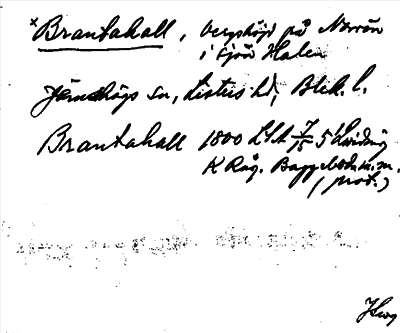 × Brantahall, berghöjd på Norrön
i sjön Halen
Jämshögs sn, Listers hd, Blek. l.
Brantahall 1800 LSA 7/15 5 Laridning
K Råg. Baggeboda m.m.
(prot.)